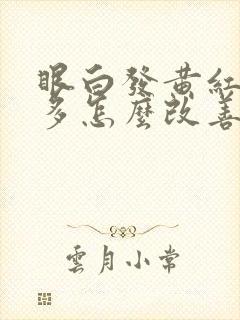 眼白發黃紅血絲
多怎麼改善
雲月小常